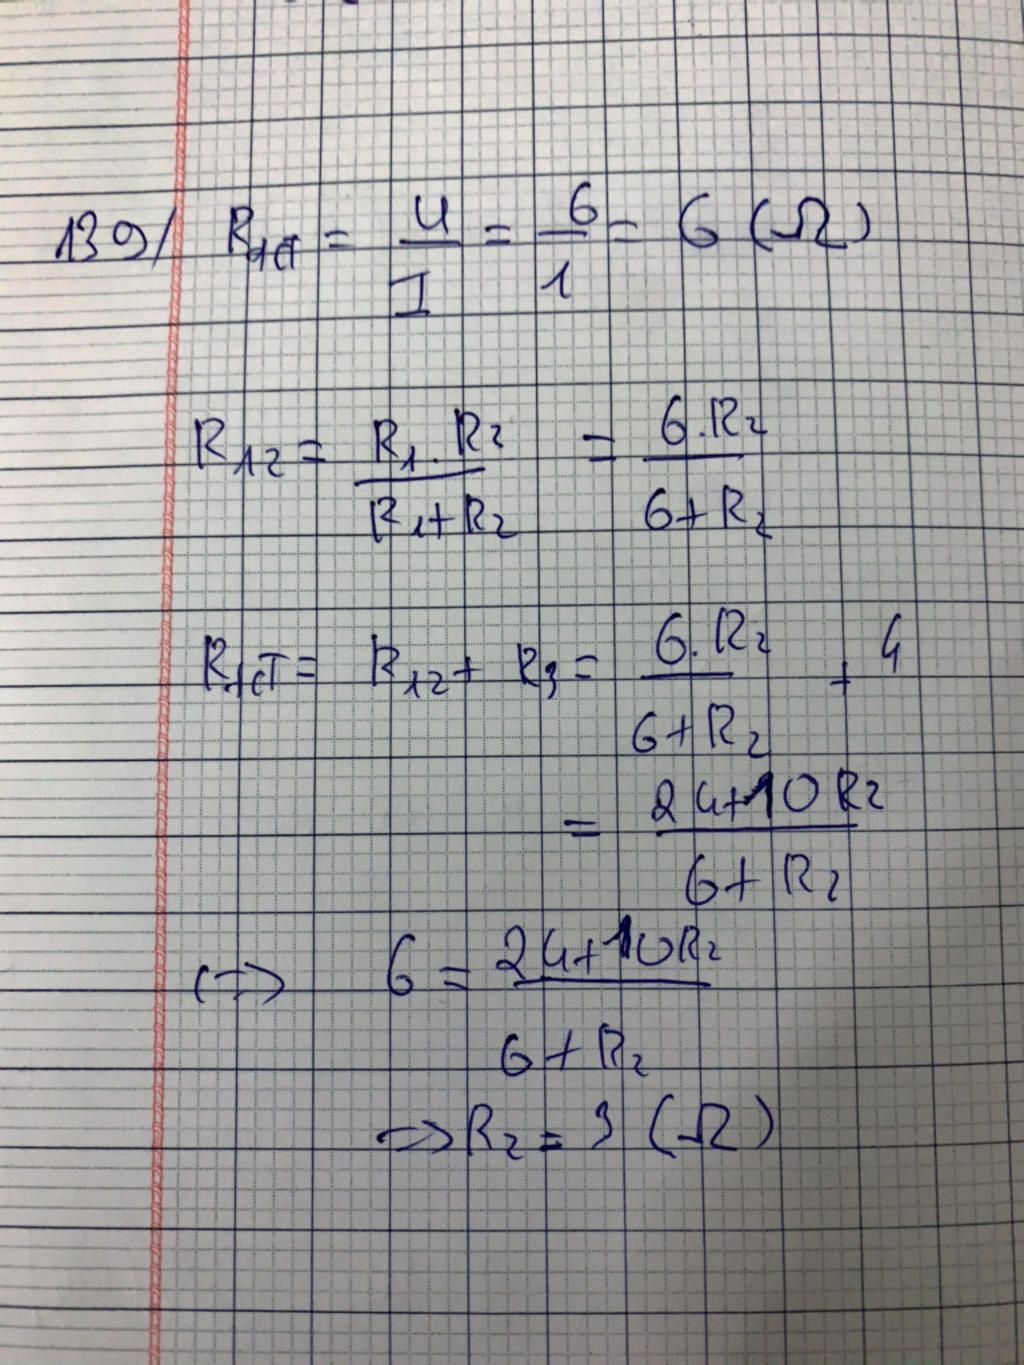 139/ Rtđ = U/I = 6/1 = 6 (Ω)
R12 = R1.R2/R1+R2 = 6.R2/6+R2
Rtđ = R12 + R3 = 6.R2/6+R2 + 4
= 24+10R2/6+R2
<=> 6 = 24+10R2/6+R2
=> R2 = 3 (Ω)